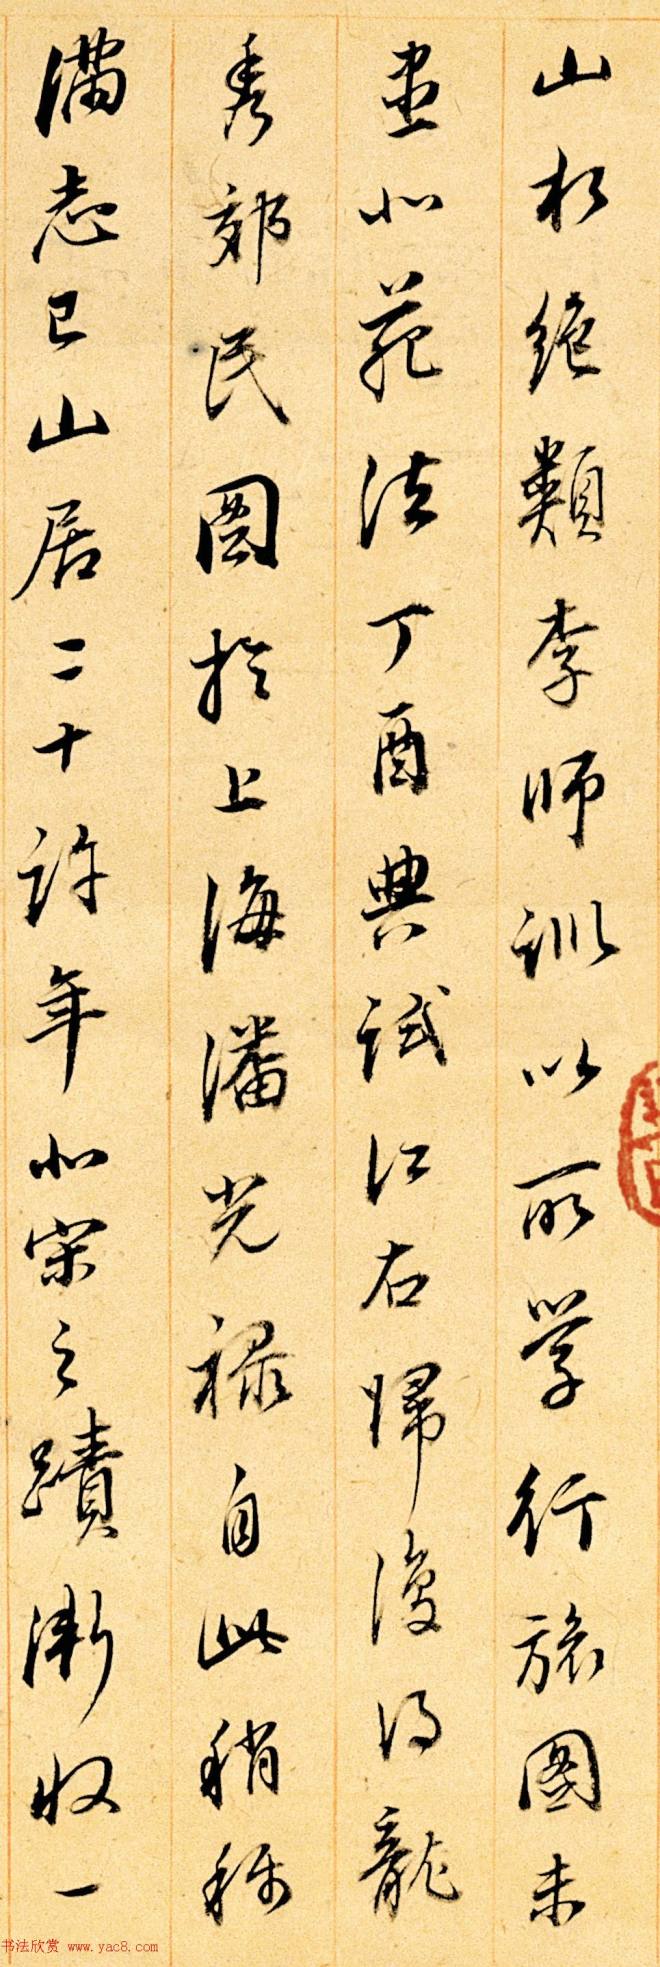 山松絕類李師訓以所学行旅圖未
盡北苑法丁酉典試江右歸復得龍
秀郊民圖於上海潘光祿自此稍稱
滿志已山居二十許年北宋之蹟漸收一
书法欣赏 www.yac8.com